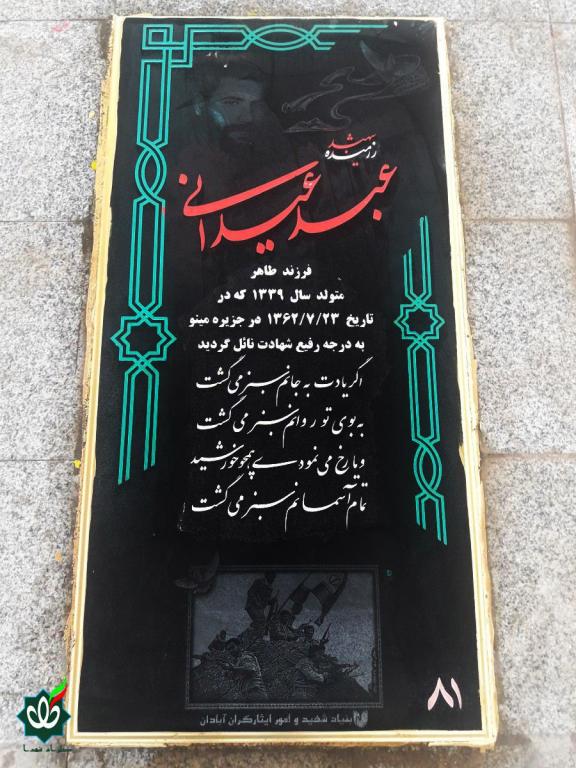 شهید
رزمنده
عبد عیدانی
فرزند طاهر
متولد سال ۱۳۳۹ که در
تاریخ ۱۳۶۲/۷/۲۳ در جزیره مینو
به درجه رفیع شهادت نائل گردید
اگر یادت به جانم سبز می گشت
به بوی تو روانم سبز می گشت
و یا رخ می نمودی همچو خورشید
تمام آسمانم سبز می گشت
بنیاد شهید و امور ایثارگران آبادان
۸۱